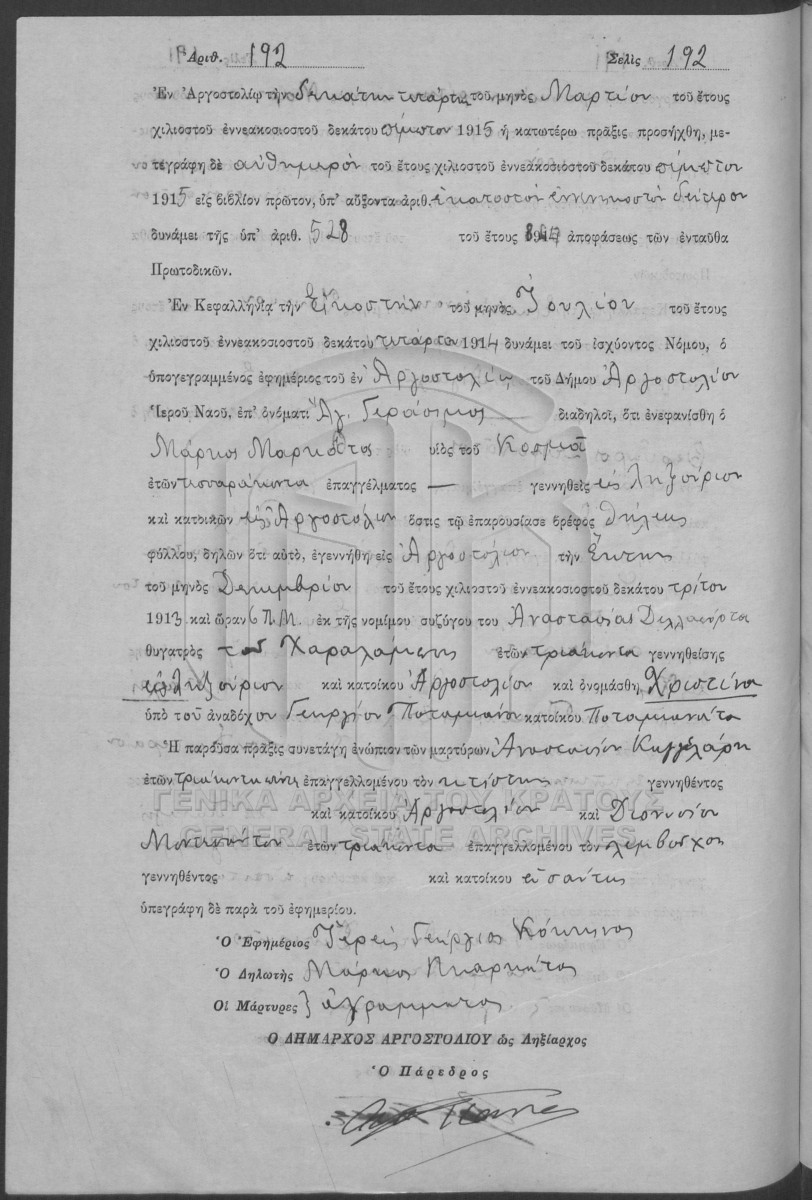 Ἀριθ. 192 Σελὶς 192
Ἐν Ἀργοστολίῳ τὴν δεκάτην τετάρτην τοῦ μηνὸς Μαρτίου τοῦ ἔτους
χιλιοστοῦ ἐννεακοσιοστοῦ δεκάτου πέμπτου 1915 ἡ κατωτέρω πρᾶξις προσήχθη, με-
τεγράφη δὲ αὐθημερὸν τοῦ ἔτους χιλιοστοῦ ἐννεακοσιοστοῦ δεκάτου πέμπτου
1915 εἰς βιβλίον πρῶτον, ὑπ' αὔξοντα ἀριθ. ἑκατοστὸν ἐννενηκοστὸν δεύτερον
δυνάμει τῆς ὑπ' ἀριθ. 528 τοῦ ἔτους ἀποφάσεως τῶν ἐνταῦθα
Πρωτοδικῶν.
Ἐν Κεφαλληνίᾳ τὴν Εἰκοστὴν τοῦ μηνὸς Ἰουλίου τοῦ ἔτους
χιλιοστοῦ ἐννεακοσιοστοῦ δεκάτου τετάρτου 1914 δυνάμει τοῦ ἰσχύοντος Νόμου, ὁ
ὑπογεγραμμένος ἐφημέριος τοῦ ἐν Ἀργοστολίῳ τοῦ Δήμου Ἀργοστολίου
Ἱεροῦ Ναοῦ, ἐπ' ὀνόματι Ἁγ. Γεράσιμος διαδηλοῖ, ὅτι ἐνεφανίσθη ὁ
Μάρκος Μαρκάτος υἱὸς τοῦ Κοσμᾶ
ἐτῶν τεσσαράκοντα ἐπαγγέλματος — γεννηθεὶς εἰς Ληξούριον
καὶ κατοικῶν εἰς Ἀργοστόλιον ὅστις τῷ ἐπαρουσίασε βρέφος θήλεως
φύλλου, δηλῶν ὅτι αὐτὸ, ἐγεννήθη εἰς Ἀργοστόλιον τὴν Ἕκτην
τοῦ μηνὸς Δεκεμβρίου τοῦ ἔτους χιλιοστοῦ ἐννεακοσιοστοῦ δεκάτου τρίτου
1913 καὶ ὥραν 6 Π.Μ. ἐκ τῆς νομίμου συζύγου του Ἀναστασίας Δελλαπόρτα
θυγατρὸς τοῦ Χαραλάμπης ἐτῶν τριάκοντα γεννηθείσης
εἰς Ληξούριον καὶ κατοίκου Ἀργοστολίου καὶ ὀνομάσθη Χριστίνα
ὑπὸ τοῦ ἀναδόχου Γεωργίου Ποταμιάνου κατοίκου Ποταμιανάτα
Ἡ παροῦσα πρᾶξις συνετάγη ἐνώπιον τῶν μαρτύρων Ἀναστασίου Καγγελάρη
ἐτῶν τριάκοντα πέντε ἐπαγγελλομένου τὸν κτίστης γεννηθέντος
καὶ κατοίκου Ἀργοστολίου καὶ Διονυσίου
ἐτῶν τριάκοντα ἐπαγγελλομένου τὸν λεμβοῦχος
γεννηθέντος καὶ κατοίκου ὡσαύτως
ὑπεγράφη δὲ παρὰ τοῦ ἐφημερίου.
Ὁ Ἐφημέριος Ἱερεὺς Γεώργιος Κόκκινος
Ὁ Δηλωτὴς Μάρκος Μαρκάτος
Οἱ Μάρτυρες } ἀγράμματος
Ο ΔΗΜΑΡΧΟΣ ΑΡΓΟΣΤΟΛΙΟΥ ὡς Ληξίαρχος
Ὁ Πάρεδρος
ΓΕΝΙΚΑ ΑΡΧΕΙΑ ΤΟΥ ΚΡΑΤΟΥΣ
GENERAL STATE ARCHIVES